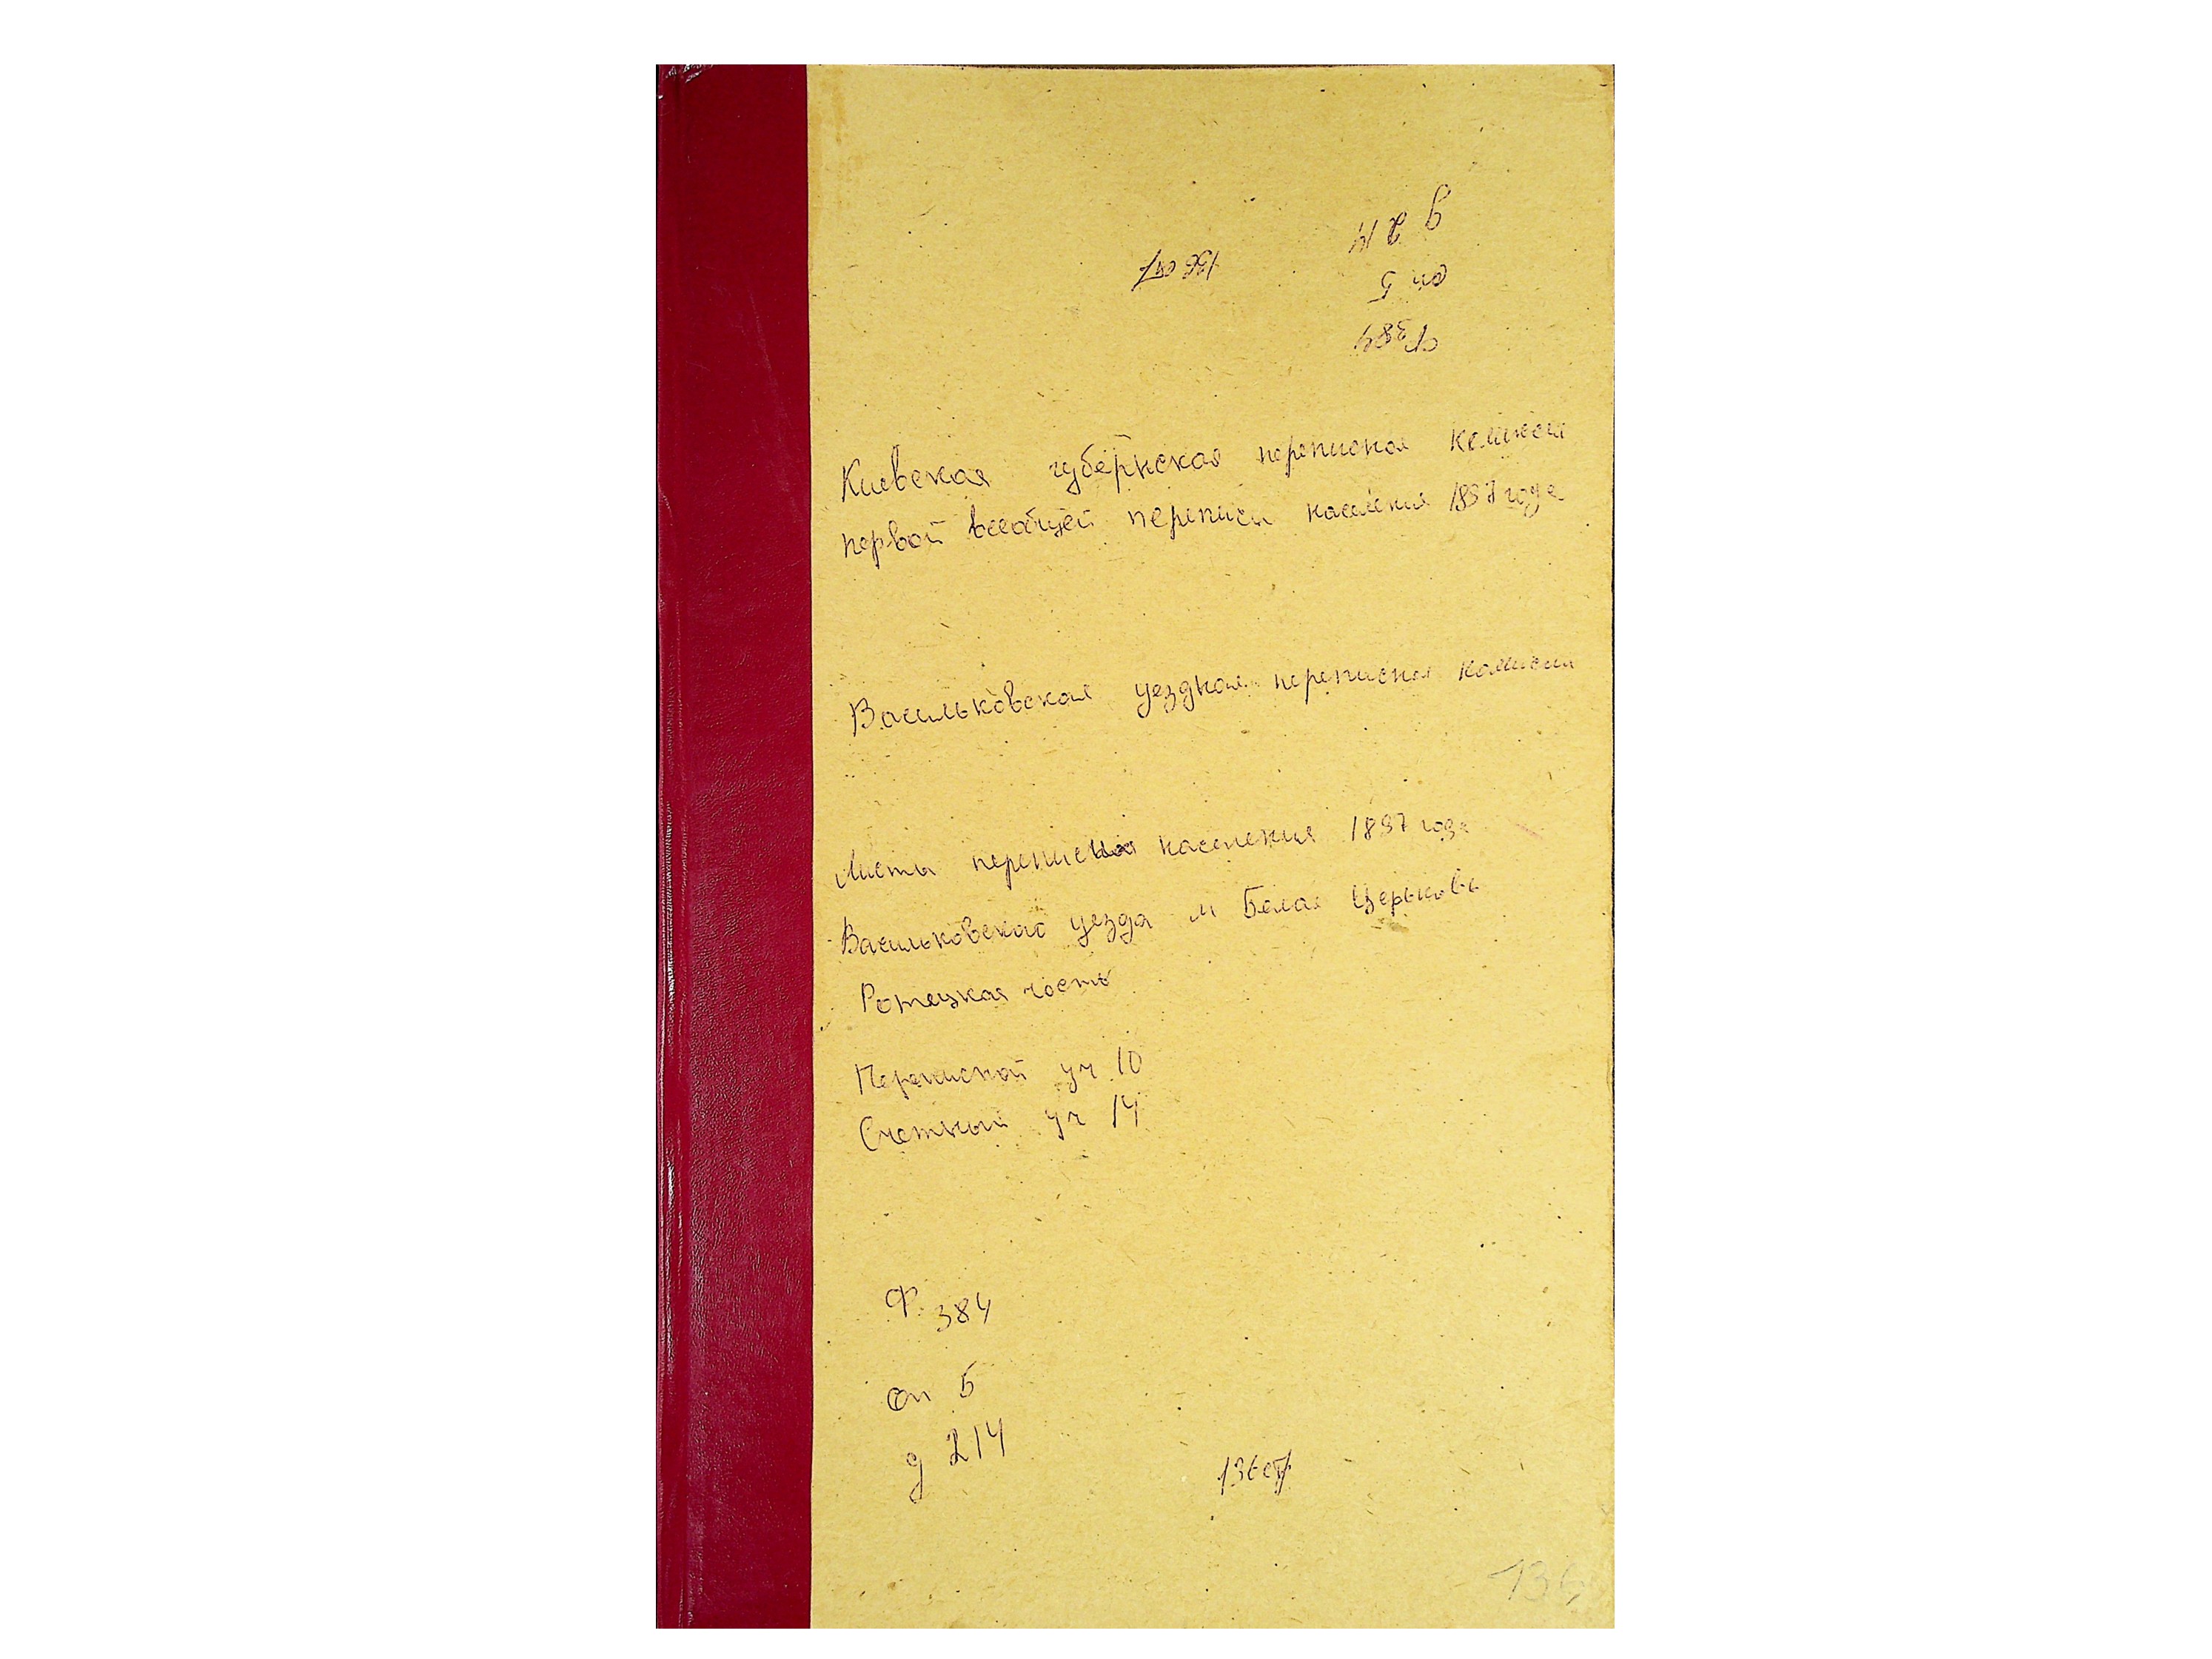 д 214
оп 5
136 стр
Ф 384
Киевская губернская переписная комисия
первой всеобщей переписи населения 1897 года
Васильковская уездная переписная комисия
Листы переписной населения 1897 года
Васильковского уезда м Белая Церьковь
Ротецкая часть
Переписной уч 10
Счетный уч 14
Ф. 384
оп 5
д 214
136 стр
136